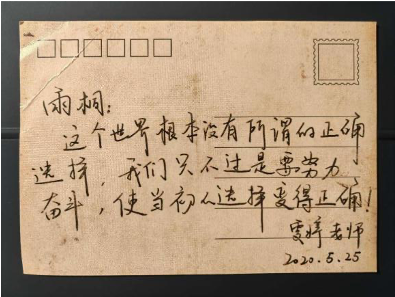 雨桐：
这个世界根本没有所谓的正确
选择，我们只不过是要努力
奋斗，使当初的选择变得正确！
雯婷老师
2020.5.25